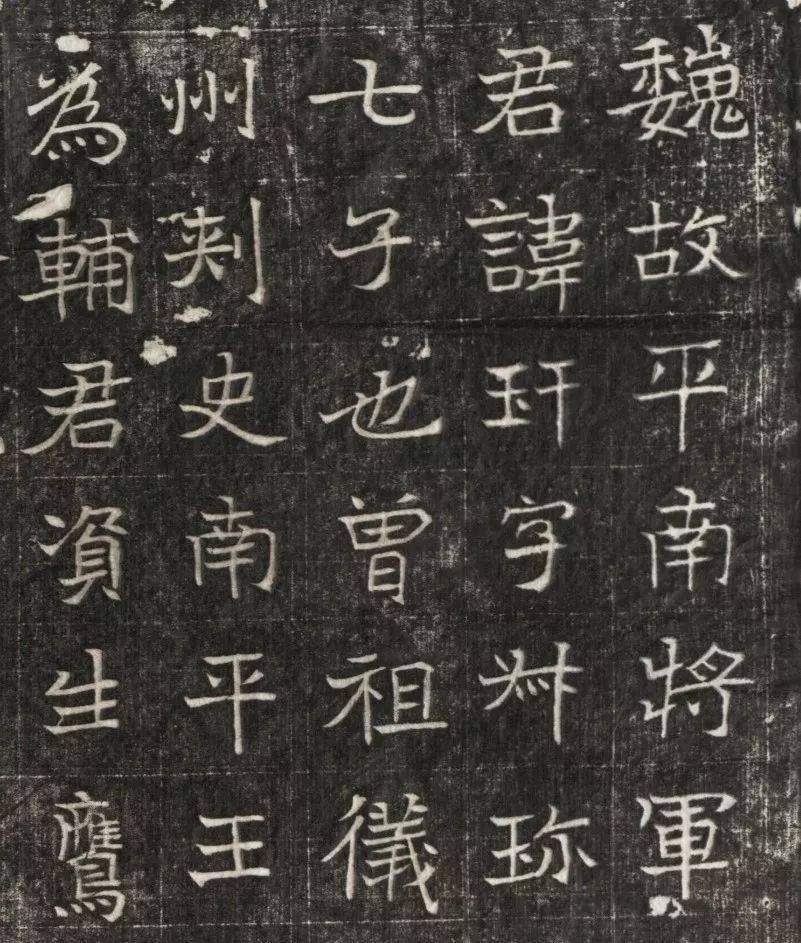 魏故平南將軍
君諱玕字叔珍
七子也曾祖儀
州刺史南平王
為輔君資生鷹